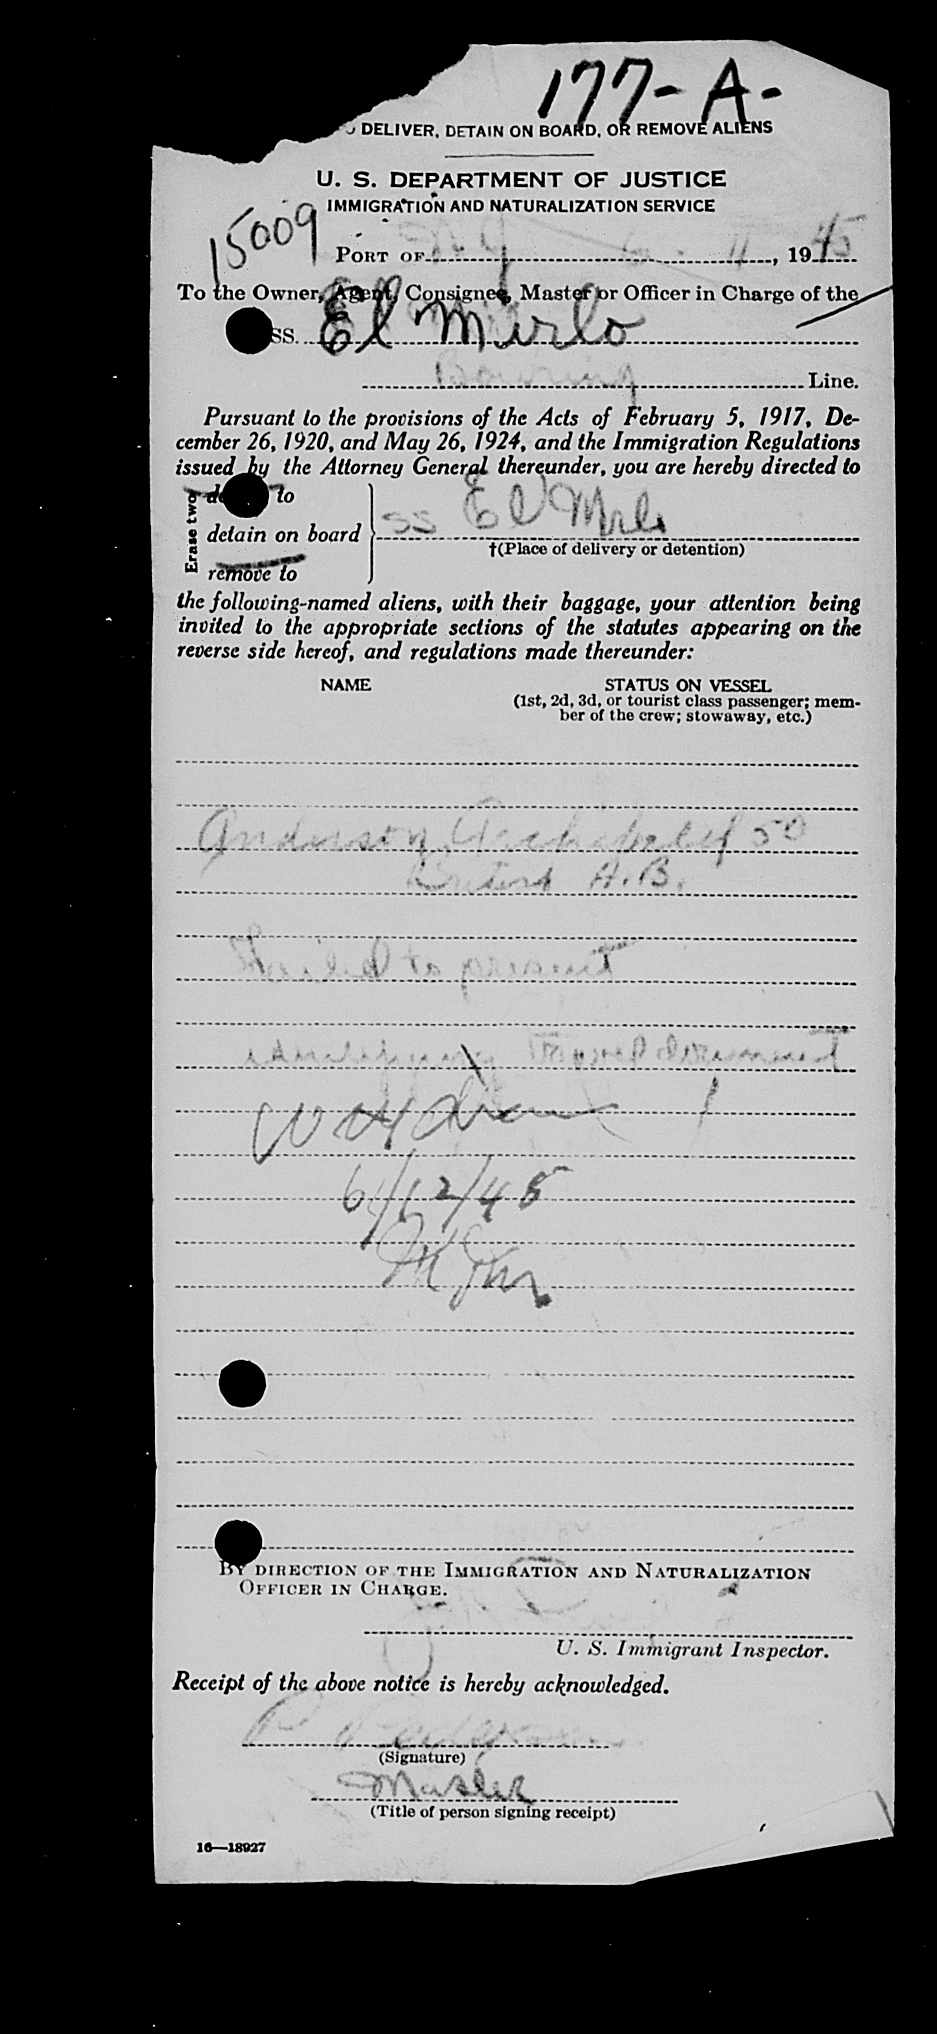 177-A-
DELIVER, DETAIN ON BOARD, OR REMOVE ALIENS
U. S. DEPARTMENT OF JUSTICE
IMMIGRATION AND NATURALIZATION SERVICE
15009
PORT OF N Y 6 - 11, 1945
To the Owner, Agent, Consignee, Master or Officer in Charge of the
SS. El Mirlo
Bowring Line.
Pursuant to the provisions of the Acts of February 5, 1917, De-
cember 26, 1920, and May 26, 1924, and the Immigration Regulations
issued by the Attorney General thereunder, you are hereby directed to
Erase two
to
detain on board
remove to
SS El Mirlo
†(Place of delivery or detention)
the following-named aliens, with their baggage, your attention being
invited to the appropriate sections of the statutes appearing on the
reverse side hereof, and regulations made thereunder:
NAME STATUS ON VESSEL
(1st, 2d, 3d, or tourist class passenger; mem-
ber of the crew; stowaway, etc.)
Anderson, 50
British A.B.
Failed to present
identifying Travel document
6/12/45
BY DIRECTION OF THE IMMIGRATION AND NATURALIZATION
OFFICER IN CHARGE.
U. S. Immigrant Inspector.
Receipt of the above notice is hereby acknowledged.
P.
(Signature)
Master
(Title of person signing receipt)
16—18927